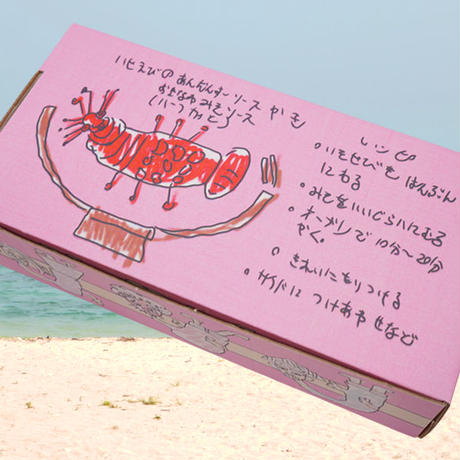 いせえびのあんだんすーソース かも
おきなわみそソース
(ハーフカット)
レシピ
・いせえびを はんぶん
にわる
・みそをいいぐらいにぬる
・オーブンで 10分〜20分
やく。
・きれいにもりつける
・サイドに つけあわせなど